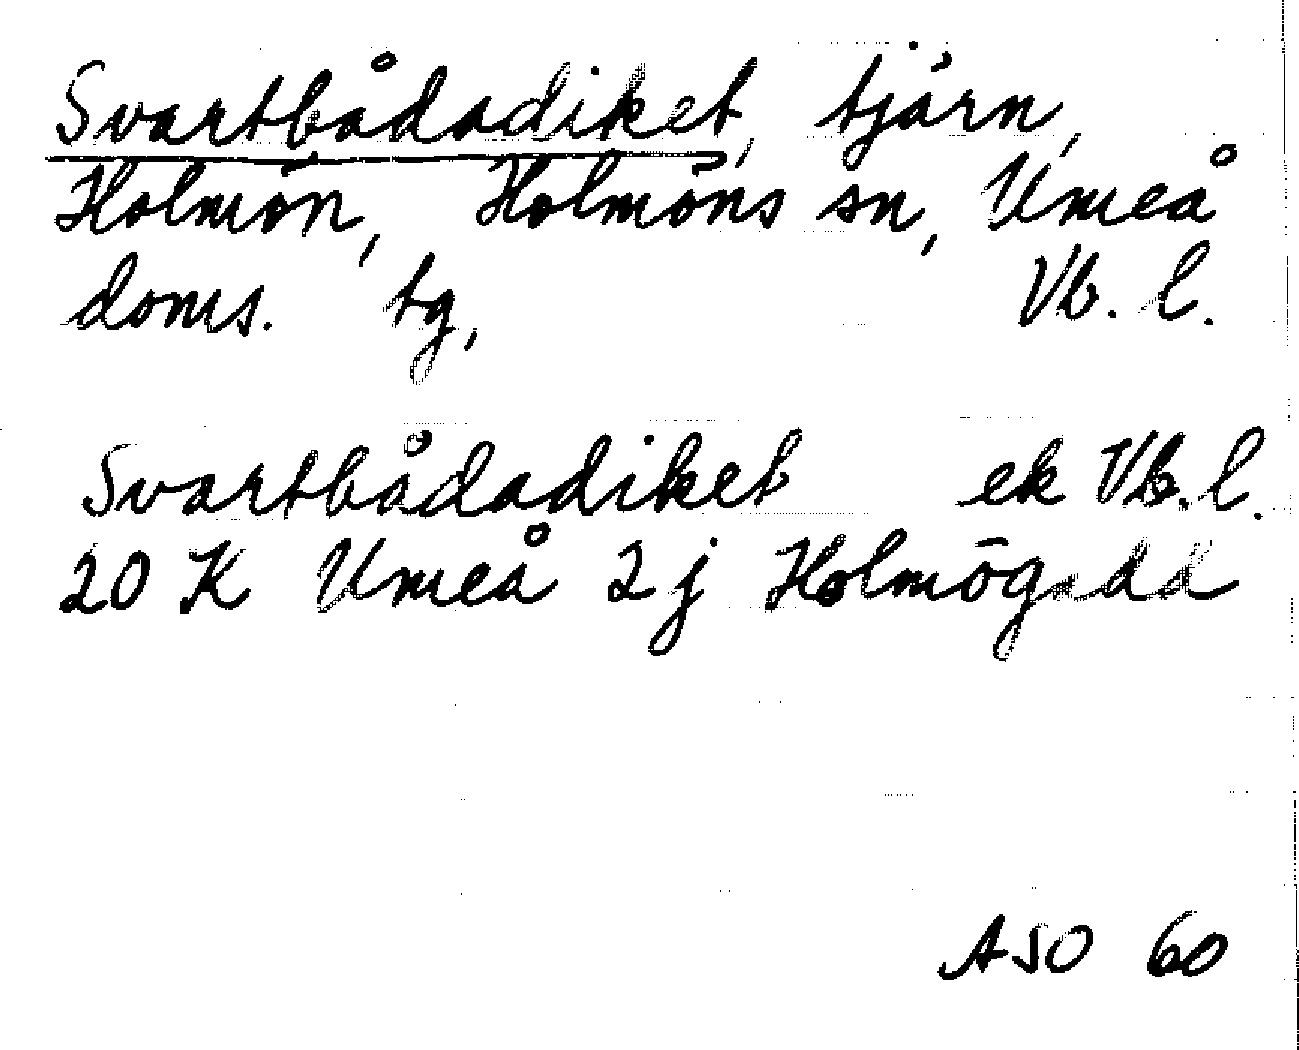 Svartbådadiket, tjärn,
Holmön, Holmöns sn, Umeå
doms. tg, Vb. l.
Svartbådadiket ek Vb. l.
20 K Umeå 2 j Holmögadd
ASO 60